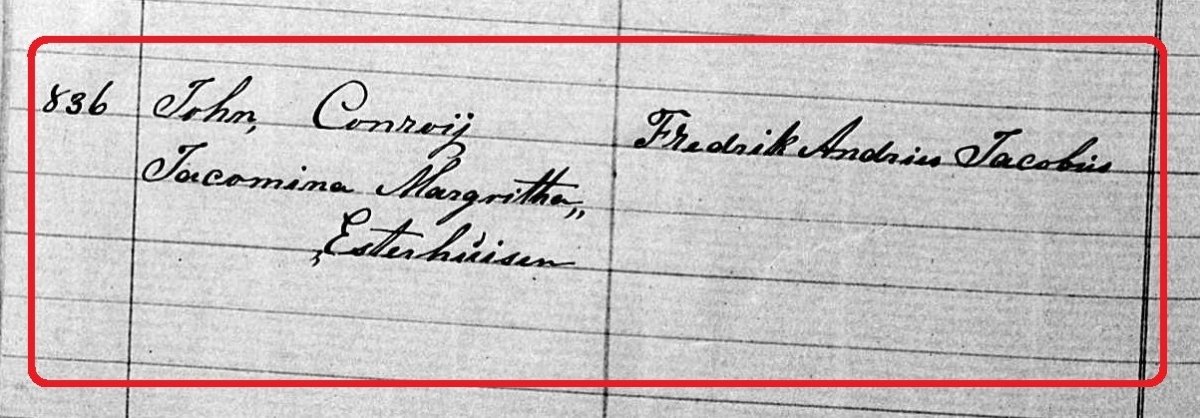 836 John, Conroij Fredrik Andries Jacobus
Jacomina Margritha,,
,Esterhúisen